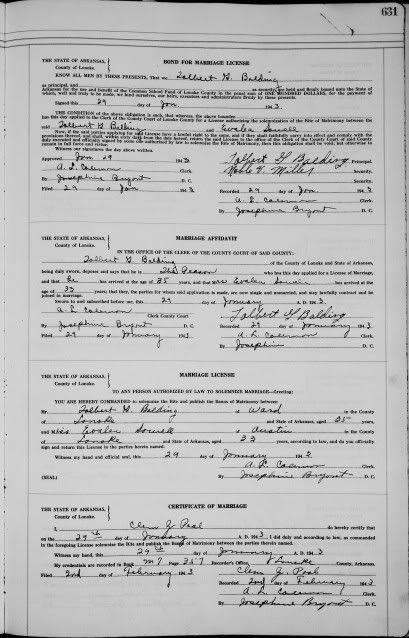 631
THE STATE OF ARKANSAS,
County of Lonoke.
BOND FOR MARRIAGE LICENSE
KNOW ALL MEN BY THESE PRESENTS, That we Talbert G. Balding
as principal, and as security, are held and firmly bound unto the State of
Arkansas for the use and benefit of the Common School Fund of Lonoke County in the penal sum of ONE HUNDRED DOLLARS, for the payment of
which, well and truly to be made, we bind ourselves, our heirs, executors and administrators firmly by these presents.
Signed this 29 day of Jan. 1943.
THE CONDITION of the above obligation is such, that whereas, the above bounden
has this day applied to the Clerk of the County Court of Lonoke County for a License authorizing the solemnization of the Rite of Matrimony between the
said Talbert G. Balding and Evalee Sowell
Now, if the said parties applying for said License have a lawful right to the same, and if they shall faithfully carry into effect and comply with the
provisions thereof, and shall, within sixty days from the date hereof, return the said License to the office of the Clerk of the County Court of said County
duly executed and officially signed by some one authorized by law to solemnize the Rite of Matrimony, then this obligation shall be void, but otherwise to
remain in full force and virtue.
Witness our signatures the day above written.
Approved Jan 29 1943 Talbert G Balding Principal.
Clerk. Noble T. Miller Security.
By Josephine Bryant D. C. Security.
Filed 29 day of Jan 1943 Recorded 29 day of Jan 1943
Clerk.
By Josephine Bryant D. C.
THE STATE OF ARKANSAS,
County of Lonoke.
MARRIAGE AFFIDAVIT
IN THE OFFICE OF THE CLERK OF THE COUNTY COURT OF SAID COUNTY:
Talbert G Balding of the County of Lonoke and State of Arkansas,
being duly sworn, deposes and says that he is The Person who has this day applied for a License of Marriage,
and that he has arrived at the age of 35 years, and that Evalee Sowell has arrived at the
age of 33 years; that they, the parties for whom said application is made, are now single and unmarried, and may lawfully contract and be
joined in marriage.
Sworn to and subscribed before me, this 29 day of January A. D. 1943.
Clerk County Court Talbert G Balding
By Josephine Bryant D. C. Recorded 29 day of January 1943
Filed 29 day of January 1943 Clerk.
By Josephine D. C.
THE STATE OF ARKANSAS,
County of Lonoke.
MARRIAGE LICENSE
TO ANY PERSON AUTHORIZED BY LAW TO SOLEMNIZE MARRIAGE—Greeting:
YOU ARE HEREBY COMMANDED to solemnize the Rite and publish the Banns of Matrimony between:
Mr. Talbert G. Balding of Ward in the County
of Lonoke and State of Arkansas, aged 35 years,
and Miss Evalee Sowell of Austin in the County
of Lonoke and State of Arkansas, aged 33 years, according to law, and do you officially
sign and return this License to the parties herein named.
Witness my hand and official seal, this 29 day of January 1943
Clerk.
(SEAL) By Josephine Bryant D. C.
THE STATE OF ARKANSAS,
County of Lonoke.
CERTIFICATE OF MARRIAGE
I, Clem J Pool do hereby certify that
on the 29th day of January A. D. 1943, I did duly and according to law, as commanded
in the foregoing License solemnize the Rite and publish the Banns of Matrimony between the parties therein named.
Witness my hand, this 29th day of January 1943
My credentials are recorded in Book M7 Page 357 Recorder's Office, Lonoke County, Arkansas.
Clem J. Pool
Filed 2nd day of February 1943 Recorded 2nd day of February 1943
Clerk.
By Josephine Bryant D. C.